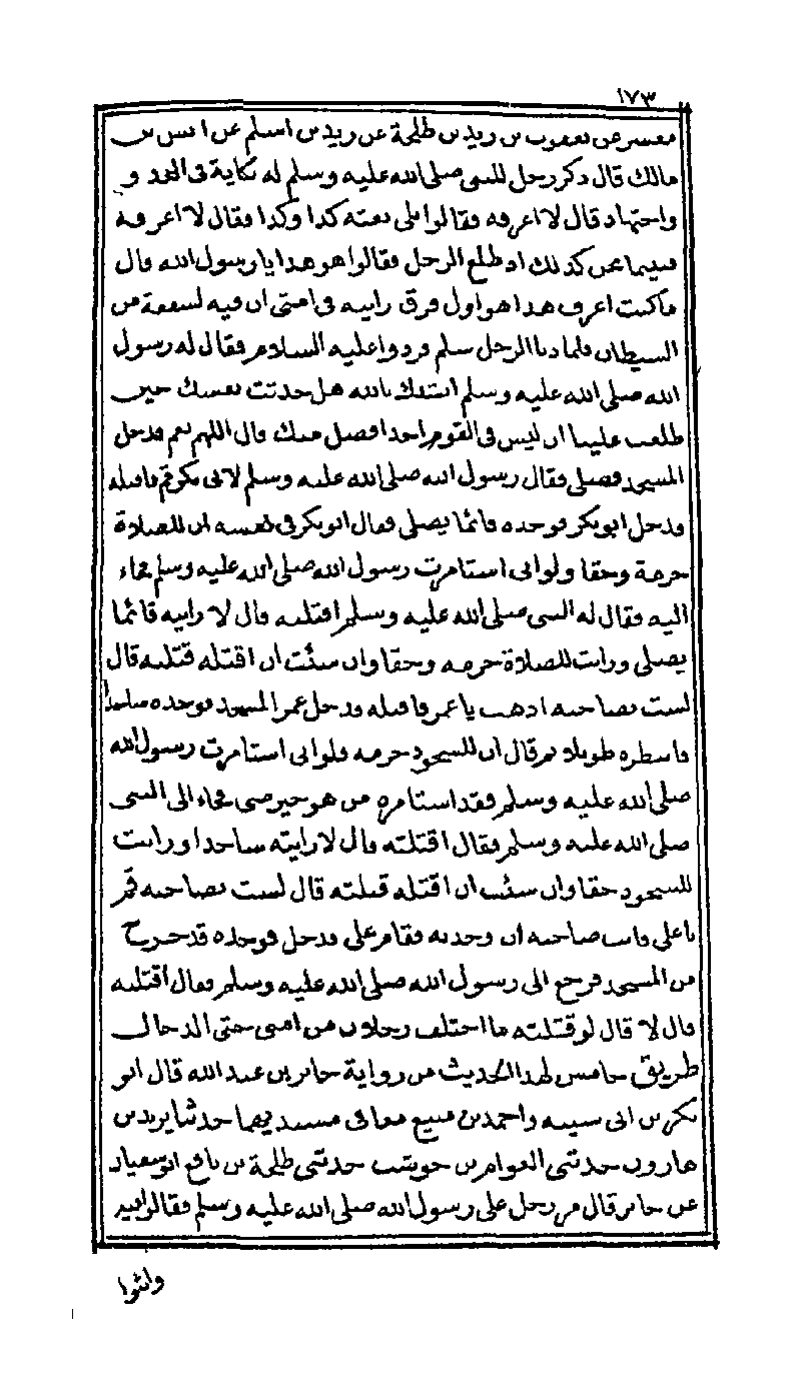 ١٧٣
معشر عن يعقوب بن زيد بن طلحة عن زيد بن اسلم عن انس بن
مالك قال ذكر رجل للنبي صلى الله عليه وسلم له نكاية في العدو
واجتهاد قال لا اعرفه فقالوا بلى نعته كذا وكذا فقال لا اعرفه
فبينما نحن كذلك اذ طلع الرجل فقالوا هو هذا يا رسول الله قال
ما كنت اعرف هذا هو اول قرن رايته في امتي ان فيه لسفعة من
الشيطان فلما دنا الرجل سلم فردوا عليه السلام فقال له رسول
الله صلى الله عليه وسلم انشدك بالله هل حدثت نفسك حين
طلعت علينا ان ليس في القوم احد افضل منك قال اللهم نعم فدخل
المسجد فصلى فقال رسول الله صلى الله عليه وسلم لابي بكر قم فاقتله
فدخل ابو بكر فوجده قائما يصلي فقال ابو بكر في نفسه ان للصلاة
حرمة وحقا ولو اني استامرت رسول الله صلى الله عليه وسلم فجاء
اليه فقال له النبي صلى الله عليه وسلم اقتلته قال لا رايته قائما
يصلي ورايت للصلاة حرمه وحقا وان شئت ان اقتله قتلته قال
لست بصاحبه اذهب يا عمر فاقتله فدخل عمر المسجد فوجده ساجدا
فانتظره طويلا ثم قال ان للسجود حرمه فلو اني استامرت رسول الله
صلى الله عليه وسلم فقد استامره من هو خير مني فجاء الى النبي
صلى الله عليه وسلم فقال اقتلته قال لا رايته ساجدا ورايت
للسجود حقا وان شئت ان اقتله قتلته قال لست بصاحبه قم
يا علي فانت صاحبه ان وجدته فقام علي فدخل فوجده قد خرج
من المسجد فرجع الى رسول الله صلى الله عليه وسلم فقال اقتلته
قال لا قال لو قتلته ما اختلف رجلان من امتي حتى الدجال
طريق خامس لهذا الحديث من رواية جابر بن عبد الله قال ابو
بكر بن ابي شيبه واحمد بن منيع معا في مسنديهما حدثنا يزيد بن
هارون حدثني العوام بن حوشب حدثني طلحة بن نافع ابو سفيان
عن جابر قال مر رجل على رسول الله صلى الله عليه وسلم فقالوا فيه
واثنوا